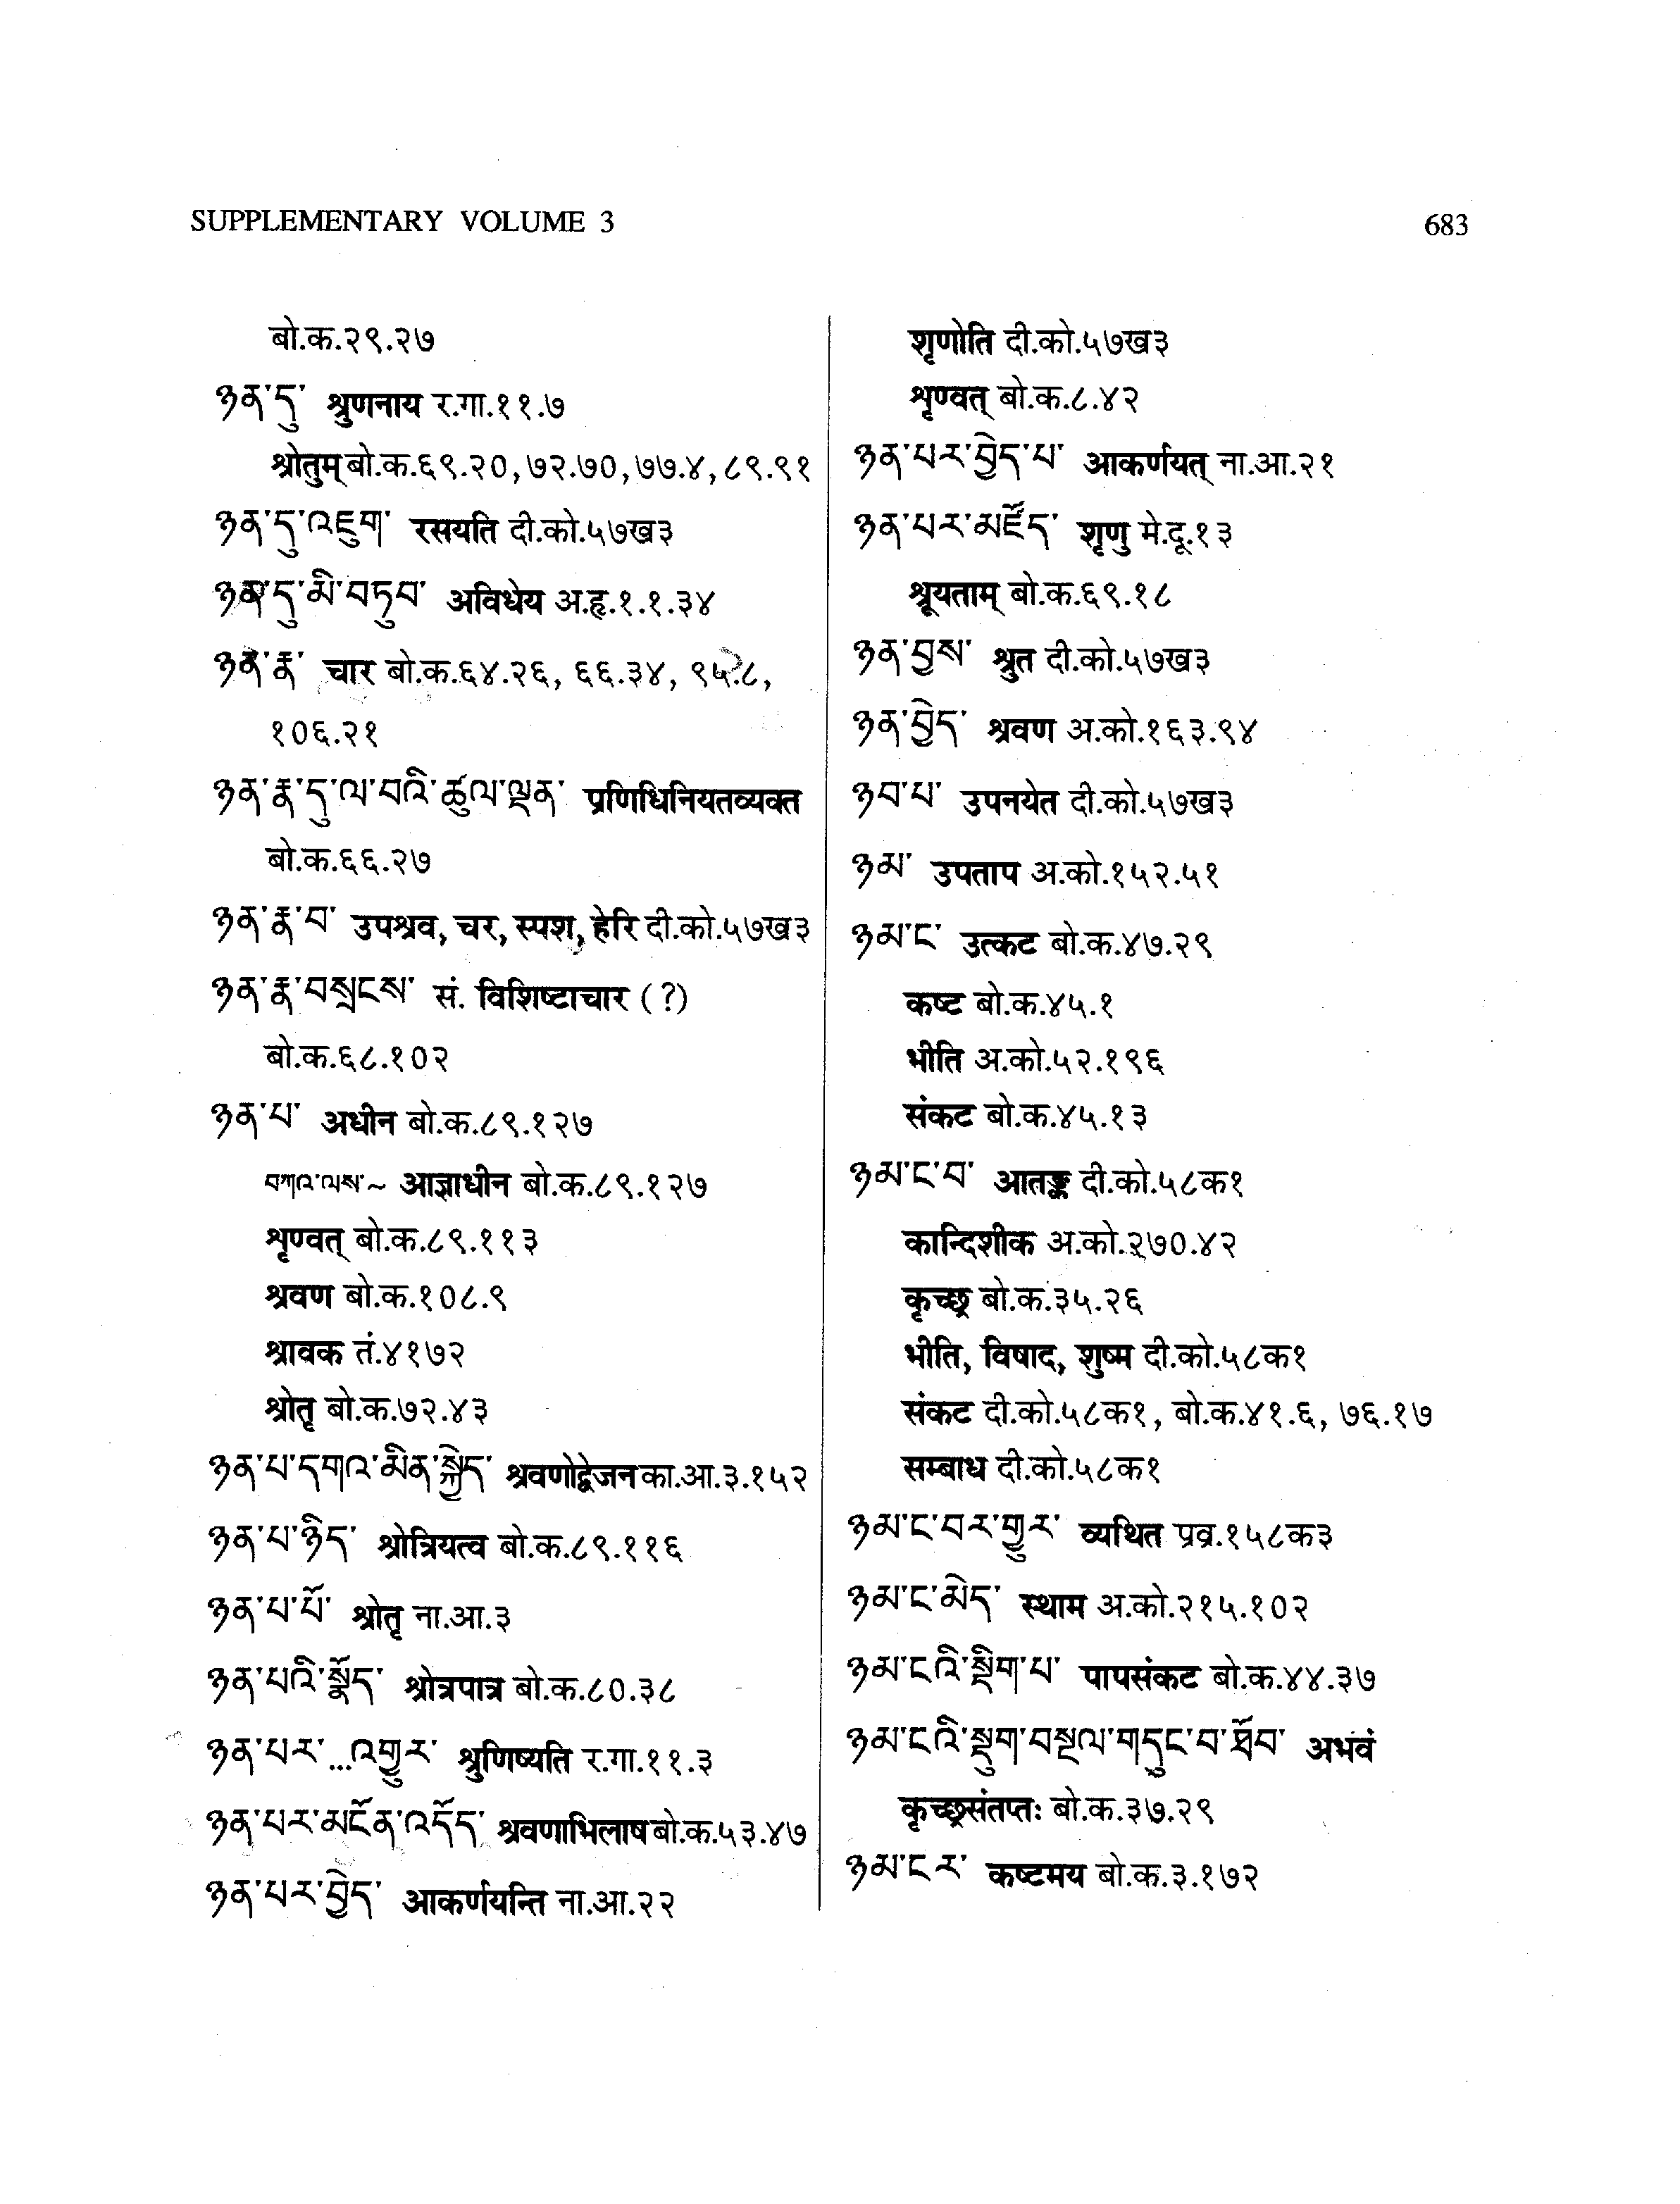 SUPPLEMENTARY VOLUME 3
683
बो.क.२९.२७
ཉན་དུ་ श्रुणनाय र.गा.११.७
श्रोतुम् बो.क.६९.२०, ७२.७०, ७७.४, ८९.९१
ཉན་དུ་འཇུག་ रसयति दी.को.५७ख३
ཉན་དུ་མི་བཏུབ་ अविधेय अ.हृ.१.१.३४
ཉན་རྣ་ चार बो.क.६४.२६, ६६.३४, ९५.८,
१०६.२१
ཉན་རྣ་དུ་ལ་བའི་ཚུལ་ལྡན་ प्रणिधिनियतव्यक्त
बो.क.६६.२७
ཉན་རྣ་བ་ उपश्रव, चर, स्पश, हेरि दी.को.५७ख३
ཉན་རྣ་བསྲངས་ सं. विशिष्टाचार (?)
बो.क.६८.१०२
ཉན་པ་ अधीन बो.क.८९.१२७
བཀའ་ལས་~ आज्ञाधीन बो.क.८९.१२७
शृण्वत् बो.क.८९.११३
श्रवण बो.क.१०८.९
श्रावक तं.४१७२
श्रोतृ बो.क.७२.४३
ཉན་པ་དགའ་མིན་སྐྱེད་ श्रवणोद्वेजन का.आ.३.१५२
ཉན་པ་ཉིད་ श्रोत्रियत्व बो.क.८९.११६
ཉན་པ་པོ་ श्रोतृ ना.आ.३
ཉན་པའི་སྣོད་ श्रोत्रपात्र बो.क.८०.३८
ཉན་པར་...འགྱུར་ श्रुणिष्यति र.गा.११.३
ཉན་པར་མངོན་འདོད་ श्रवणाभिलाष बो.क.५३.४७
ཉན་པར་བྱེད་ आकर्णयन्ति ना.आ.२२
शृणोति दी.को.५७ख३
शृण्वत् बो.क.८.४२
ཉན་པར་བྱེད་པ་ आकर्णयत् ना.आ.२१
ཉན་པར་མཛོད་ शृणु मे.दू.१३
श्रूयताम् बो.क.६९.१८
ཉན་བྱས་ श्रुत दी.को.५७ख३
ཉན་བྱེད་ श्रवण अ.को.१६३.९४
ཉབ་པ་ उपनयेत दी.को.५७ख३
ཉམ་ उपताप अ.को.१५२.५१
ཉམ་ང་ उत्कट बो.क.४७.२९
कष्ट बो.क.४५.१
भीति अ.को.५२.१९६
संकट बो.क.४५.१३
ཉམ་ང་བ་ आतङ्क दी.को.५८क१
कान्दिशीक अ.को.२७०.४२
कृच्छ्र बो.क.३५.२६
भीति, विषाद, शुष्म दी.को.५८क१
संकट दी.को.५८क१, बो.क.४१.६, ७६.१७
सम्बाध दी.को.५८क१
ཉམ་ང་བར་གྱུར་ व्यथित प्रव्र.१५८क३
ཉམ་ང་མེད་ स्थाम अ.को.२१५.१०२
ཉམ་ངའི་སྡིག་པ་ पापसंकट बो.क.४४.३७
ཉམ་ངའི་སྡུག་བསྔལ་གདུང་བ་ཐོབ་ अभवं
कृच्छ्रसंतप्तः बो.क.३७.२९
ཉམ་ངར་ कष्टमय बो.क.३.१७२